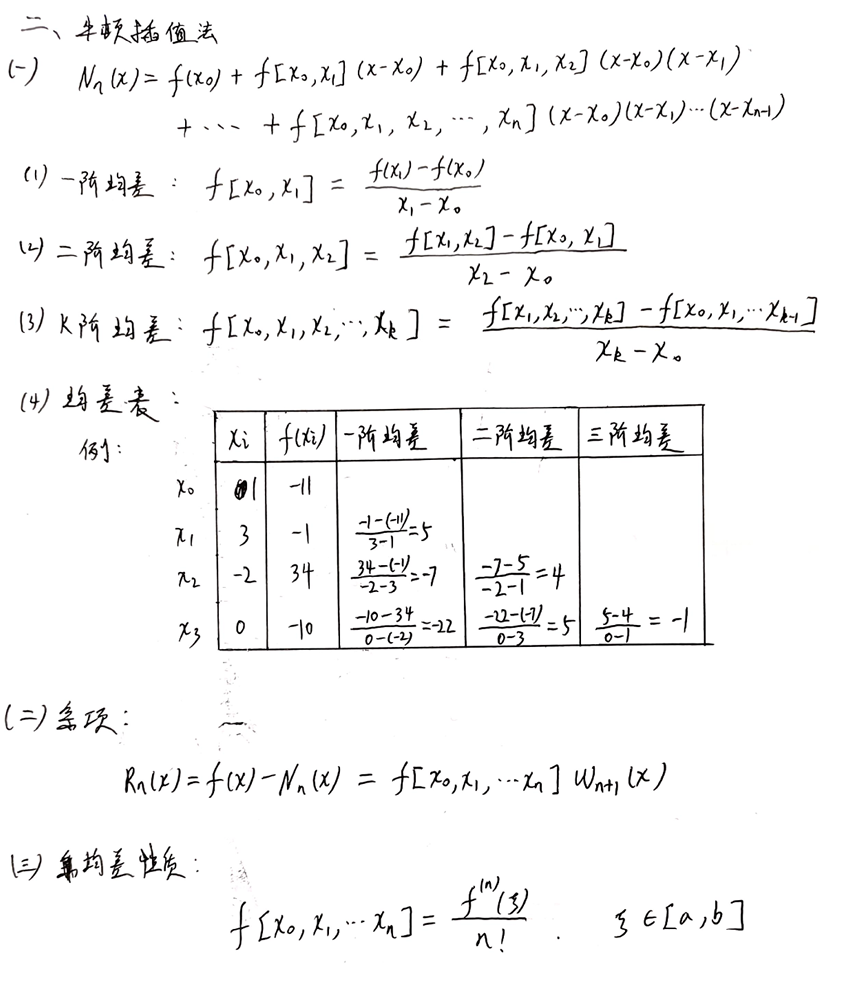 二、牛顿插值法
(一) Nₙ(x) = f(x₀) + f[x₀,x₁](x-x₀) + f[x₀,x₁,x₂](x-x₀)(x-x₁)
+ ⋯ + f[x₀,x₁,x₂,⋯,xₙ](x-x₀)(x-x₁)⋯(x-xₙ₋₁)
(1) 一阶均差: f[x₀,x₁] = (f(x₁)-f(x₀))/(x₁-x₀)
(2) 二阶均差: f[x₀,x₁,x₂] = (f[x₁,x₂]-f[x₀,x₁])/(x₂-x₀)
(3) K阶均差: f[x₀,x₁,x₂,⋯,xₖ] = (f[x₁,x₂,⋯,xₖ]-f[x₀,x₁,⋯xₖ₋₁])/(xₖ-x₀)
(4) 均差表:
例: xᵢ f(xᵢ) 一阶均差 二阶均差 三阶均差
x₀ 1 -11
x₁ 3 -1 (-1-(-11))/(3-1)=5
x₂ -2 34 (34-(-1))/(-2-3)=-7 (-7-5)/(-2-1)=4
x₃ 0 -10 (-10-34)/(0-(-2))=-22 (-22-(-7))/(0-3)=5 (5-4)/(0-1)=-1
(二) 余项:
Rₙ(x)=f(x)-Nₙ(x) = f[x₀,x₁,⋯xₙ] Wₙ₊₁(x)
(三) 均差性质:
f[x₀,x₁,⋯xₙ] = f⁽ⁿ⁾(ξ)/n! . ξ∈[a,b]